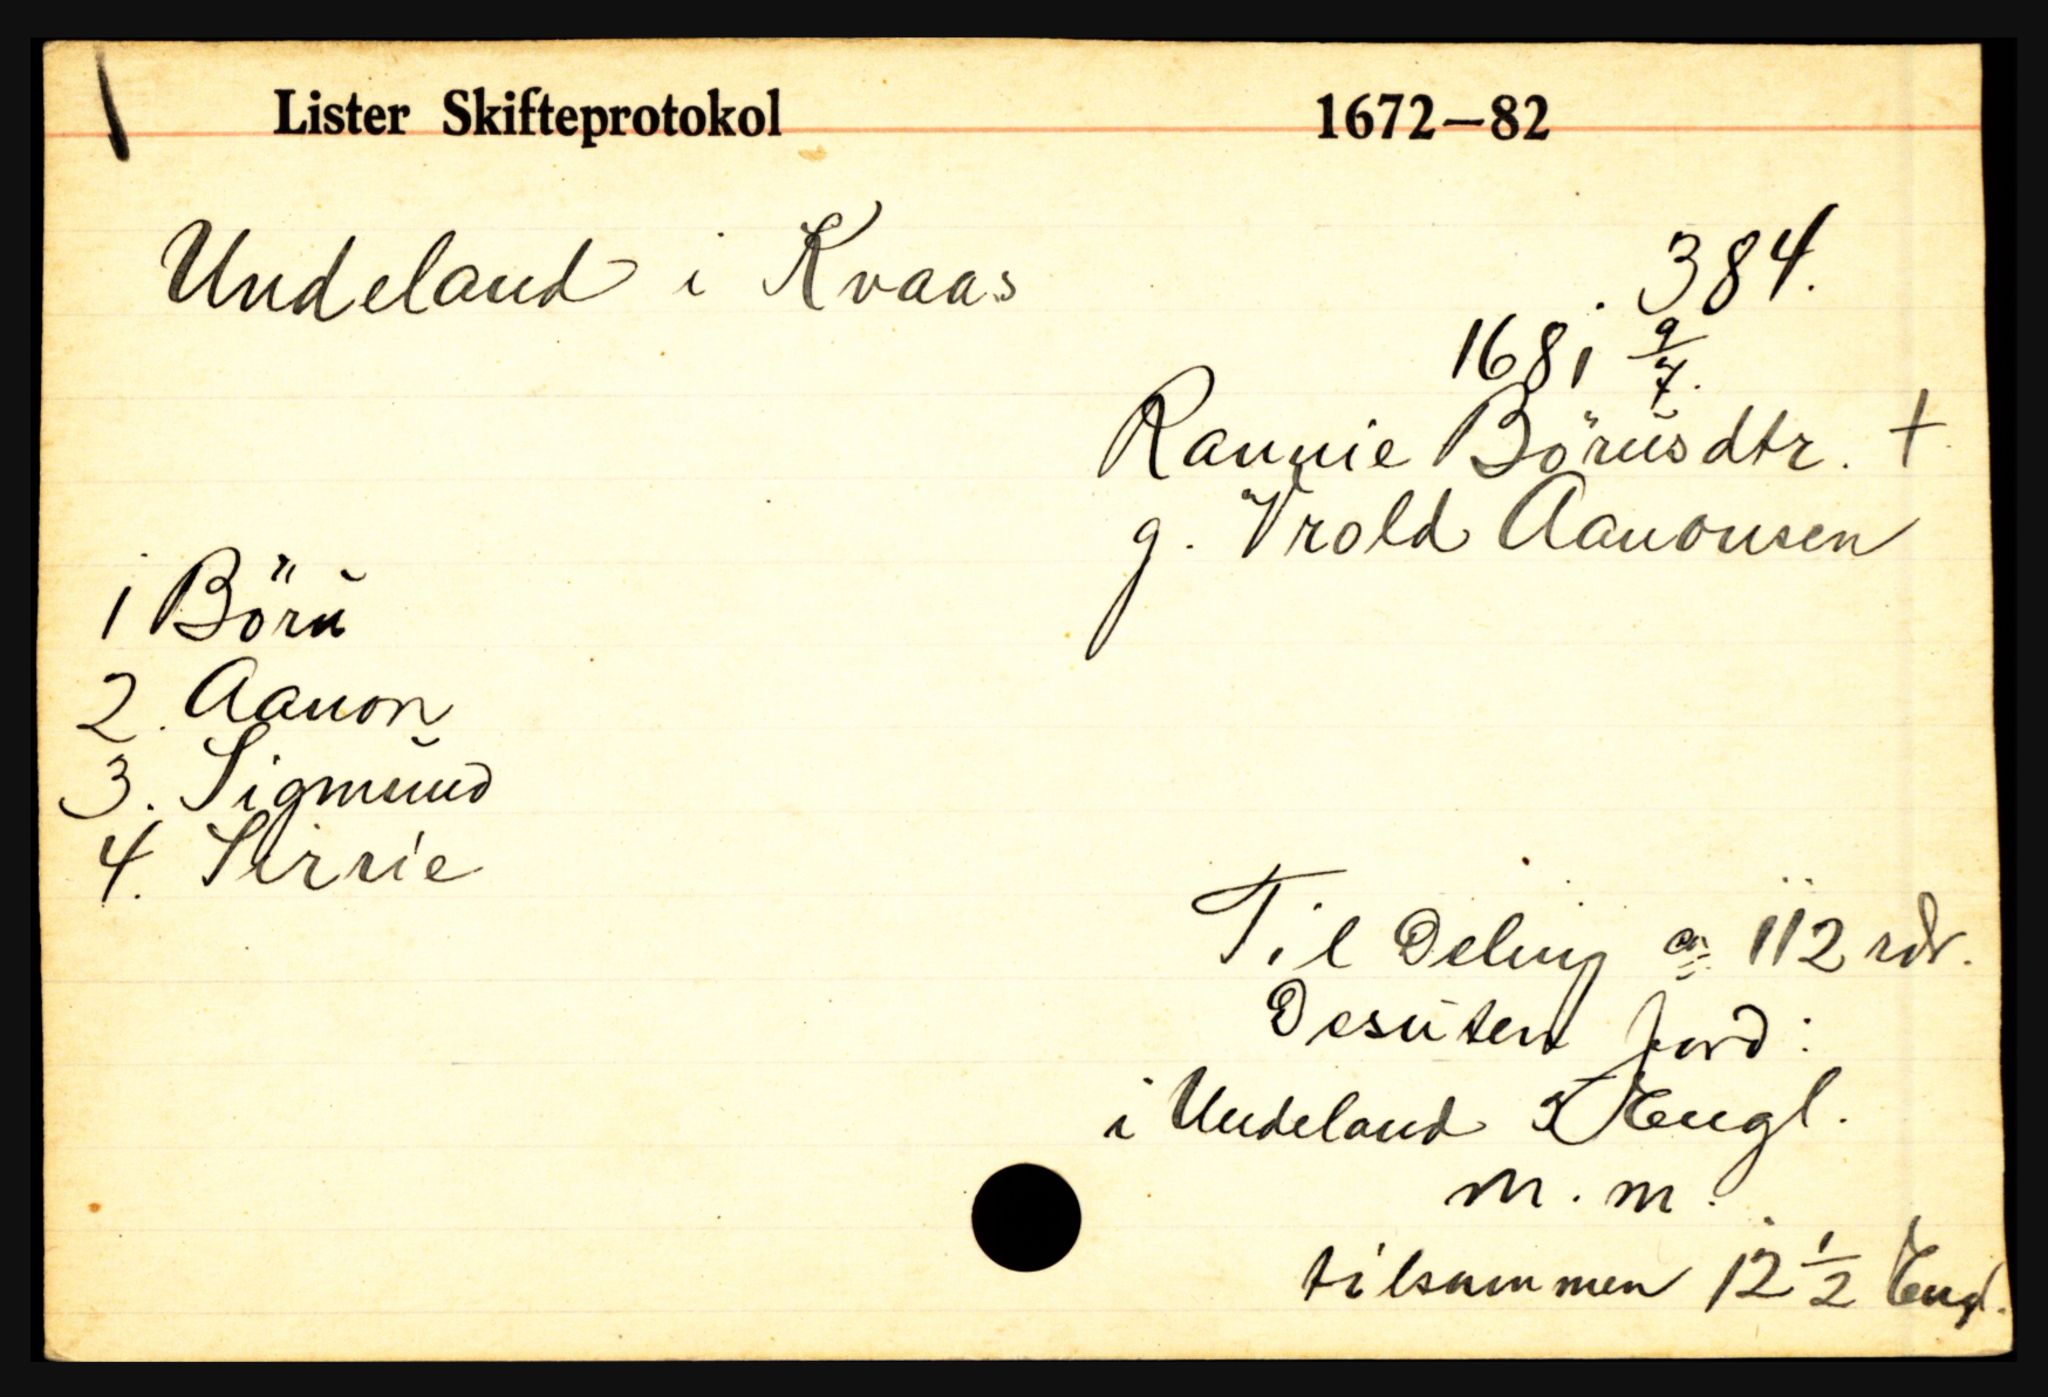 Lister Skifteprotokol 1672–82
Undeland i Kvaas
. 384.
1681 9/7.
Rannie Börüsdtr. +
g. Vrold Aanonsen
1 Börü
2. Aanon
3. Sigmund
4. Sirrie
Til Deling ca 112 rdr.
Desuten jord:
i Undeland 3 Engl.
m. m.
tilsammen 12 1/2 Engl.